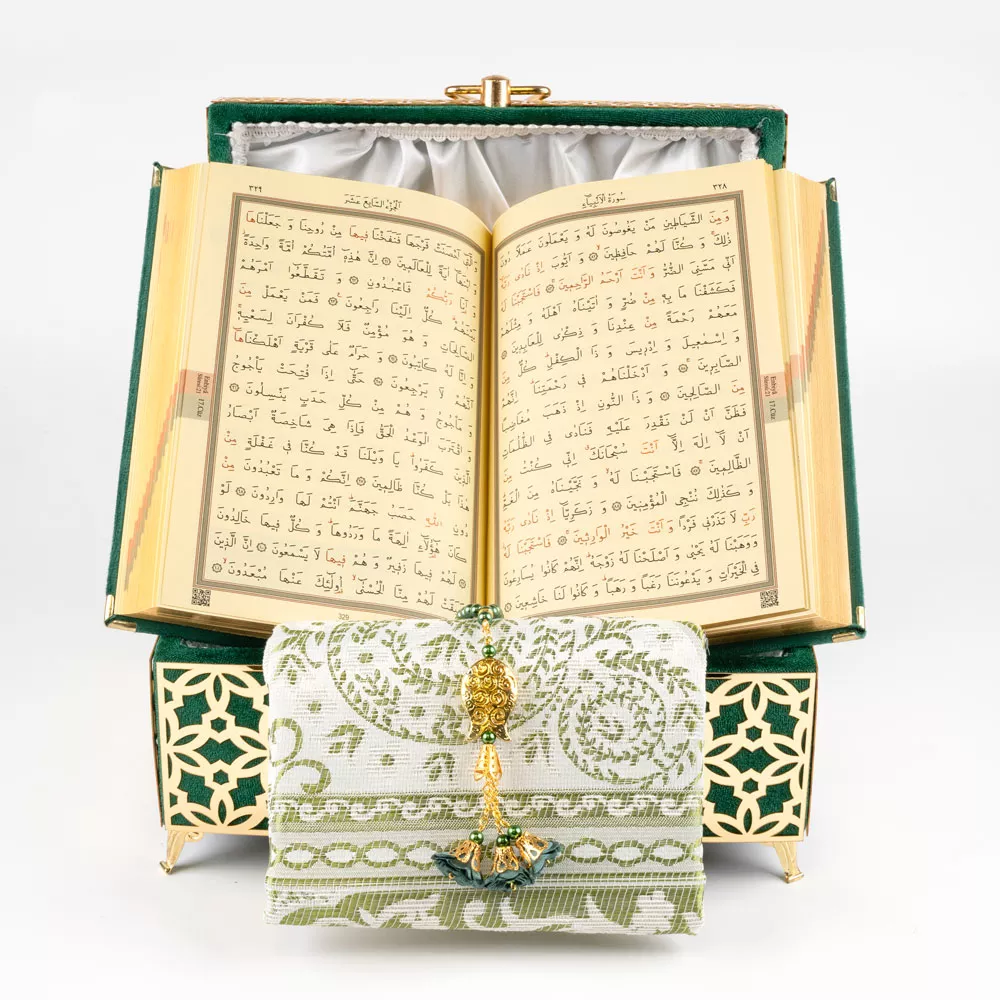 ٣٢٨
سُورَةُ الْاَنْبِيَاءِ
وَ مِنَ الشَّيَاطِينِ مَنْ يَغُوصُونَ لَهُ وَ يَعْمَلُونَ عَمَلًا دُونَ
ذٰلِكَ وَ كُنَّا لَهُمْ حَافِظِينَ وَ اَيُّوبَ اِذْ نَادٰى رَبَّهُ
اَنِّي مَسَّنِيَ الضُّرُّ وَ اَنْتَ اَرْحَمُ الرَّاحِمِينَ فَاسْتَجَبْنَا لَهُ
فَكَشَفْنَا مَا بِهِ مِنْ ضُرٍّ وَ اٰتَيْنَاهُ اَهْلَهُ وَ مِثْلَهُمْ
مَعَهُمْ رَحْمَةً مِنْ عِنْدِنَا وَ ذِكْرٰى لِلْعَابِدِينَ
وَ اِسْمٰعِيلَ وَ اِدْرِيسَ وَ ذَا الْكِفْلِ كُلٌّ مِنَ
الصَّابِرِينَ وَ اَدْخَلْنَاهُمْ فِي رَحْمَتِنَا اِنَّهُمْ
مِنَ الصَّالِحِينَ وَ ذَا النُّونِ اِذْ ذَهَبَ مُغَاضِبًا
فَظَنَّ اَنْ لَنْ نَقْدِرَ عَلَيْهِ فَنَادٰى فِي الظُّلُمَاتِ
اَنْ لَا اِلٰهَ اِلَّا اَنْتَ سُبْحَانَكَ اِنِّي كُنْتُ مِنَ
الظَّالِمِينَ فَاسْتَجَبْنَا لَهُ وَ نَجَّيْنَاهُ مِنَ الْغَمِّ
وَ كَذٰلِكَ نُنْجِي الْمُؤْمِنِينَ وَ زَكَرِيَّا اِذْ نَادٰى رَبَّهُ
رَبِّ لَا تَذَرْنِي فَرْدًا وَ اَنْتَ خَيْرُ الْوَارِثِينَ فَاسْتَجَبْنَا لَهُ
وَوَهَبْنَا لَهُ يَحْيٰى وَ اَصْلَحْنَا لَهُ زَوْجَهُ اِنَّهُمْ كَانُوا يُسَارِعُونَ
فِي الْخَيْرَاتِ وَ يَدْعُونَنَا رَغَبًا وَ رَهَبًا وَ كَانُوا لَنَا خَاشِعِينَ
17.Cüz
Enbiyâ
Sûresi/21
٣٢٩
اَلْجُزْءُ السَّابِعَ عَشَرَ
وَ الَّتِي اَحْصَنَتْ فَرْجَهَا فَنَفَخْنَا فِيهَا مِنْ رُوحِنَا وَ جَعَلْنَاهَا
وَ ابْنَهَا اٰيَةً لِلْعَالَمِينَ اِنَّ هٰذِهِ اُمَّتُكُمْ اُمَّةً وَاحِدَةً
وَ اَنَا رَبُّكُمْ فَاعْبُدُونِ وَ تَقَطَّعُوا اَمْرَهُمْ
بَيْنَهُمْ كُلٌّ اِلَيْنَا رَاجِعُونَ فَمَنْ يَعْمَلْ مِنَ
الصَّالِحَاتِ وَ هُوَ مُؤْمِنٌ فَلَا كُفْرَانَ لِسَعْيِهِ
وَ اِنَّا لَهُ كَاتِبُونَ وَ حَرَامٌ عَلٰى قَرْيَةٍ اَهْلَكْنَاهَا
اَنَّهُمْ لَا يَرْجِعُونَ حَتّٰى اِذَا فُتِحَتْ يَأْجُوجُ
وَ مَأْجُوجُ وَ هُمْ مِنْ كُلِّ حَدَبٍ يَنْسِلُونَ
وَ اقْتَرَبَ الْوَعْدُ الْحَقُّ فَاِذَا هِيَ شَاخِصَةٌ اَبْصَارُ
الَّذِينَ كَفَرُوا يَا وَيْلَنَا قَدْ كُنَّا فِي غَفْلَةٍ مِنْ
هٰذَا بَلْ كُنَّا ظَالِمِينَ اِنَّكُمْ وَ مَا تَعْبُدُونَ مِنْ
دُونِ اللّٰهِ حَصَبُ جَهَنَّمَ اَنْتُمْ لَهَا وَارِدُونَ لَوْ
كَانَ هٰؤُلَاءِ اٰلِهَةً مَا وَرَدُوهَا وَ كُلٌّ فِيهَا خَالِدُونَ
لَهُمْ فِيهَا زَفِيرٌ وَ هُمْ فِيهَا لَا يَسْمَعُونَ اِنَّ الَّذِينَ
سَبَقَتْ لَهُمْ مِنَّا الْحُسْنٰى اُولٰئِكَ عَنْهَا مُبْعَدُونَ
Enbiyâ
Sûresi/21
17.Cüz
329